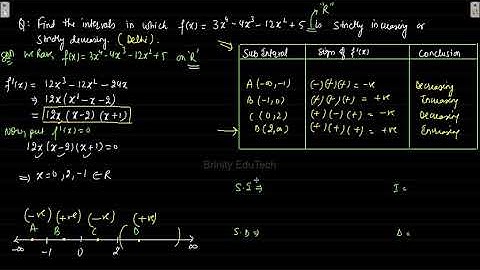 Q: Find the intervals in which f(x) = 3x⁴ - 4x³ - 12x² + 5 is strictly increasing or
strictly decreasing. (Delhi)
on "R"
Solⁿ We have f(x) = 3x⁴ - 4x³ - 12x² + 5 on 'R'
f'(x) = 12x³ - 12x² - 24x
⇒ 12x (x² - x - 2)
= 12x (x-2) (x+1)
Now, put f'(x) = 0
12x (x-2) (x+1) = 0
⇒ x = 0, 2, -1 ∈ R
(-ve) (+ve) (-ve) (+ve)
A B C D
-∞ -1 0 2 ∞
Sub Interval Sign of f'(x) Conclusion
A (-∞, -1) (-)(-)(-) = -ve Decreasing
B (-1, 0) (-)(-)(+) = +ve Increasing
C (0, 2) (+)(-)(+) = -ve Decreasing
D (2, ∞) (+)(+)(+) = +ve
Brinity EduTech
S.I ⇒ I =
S.D ⇒ D =